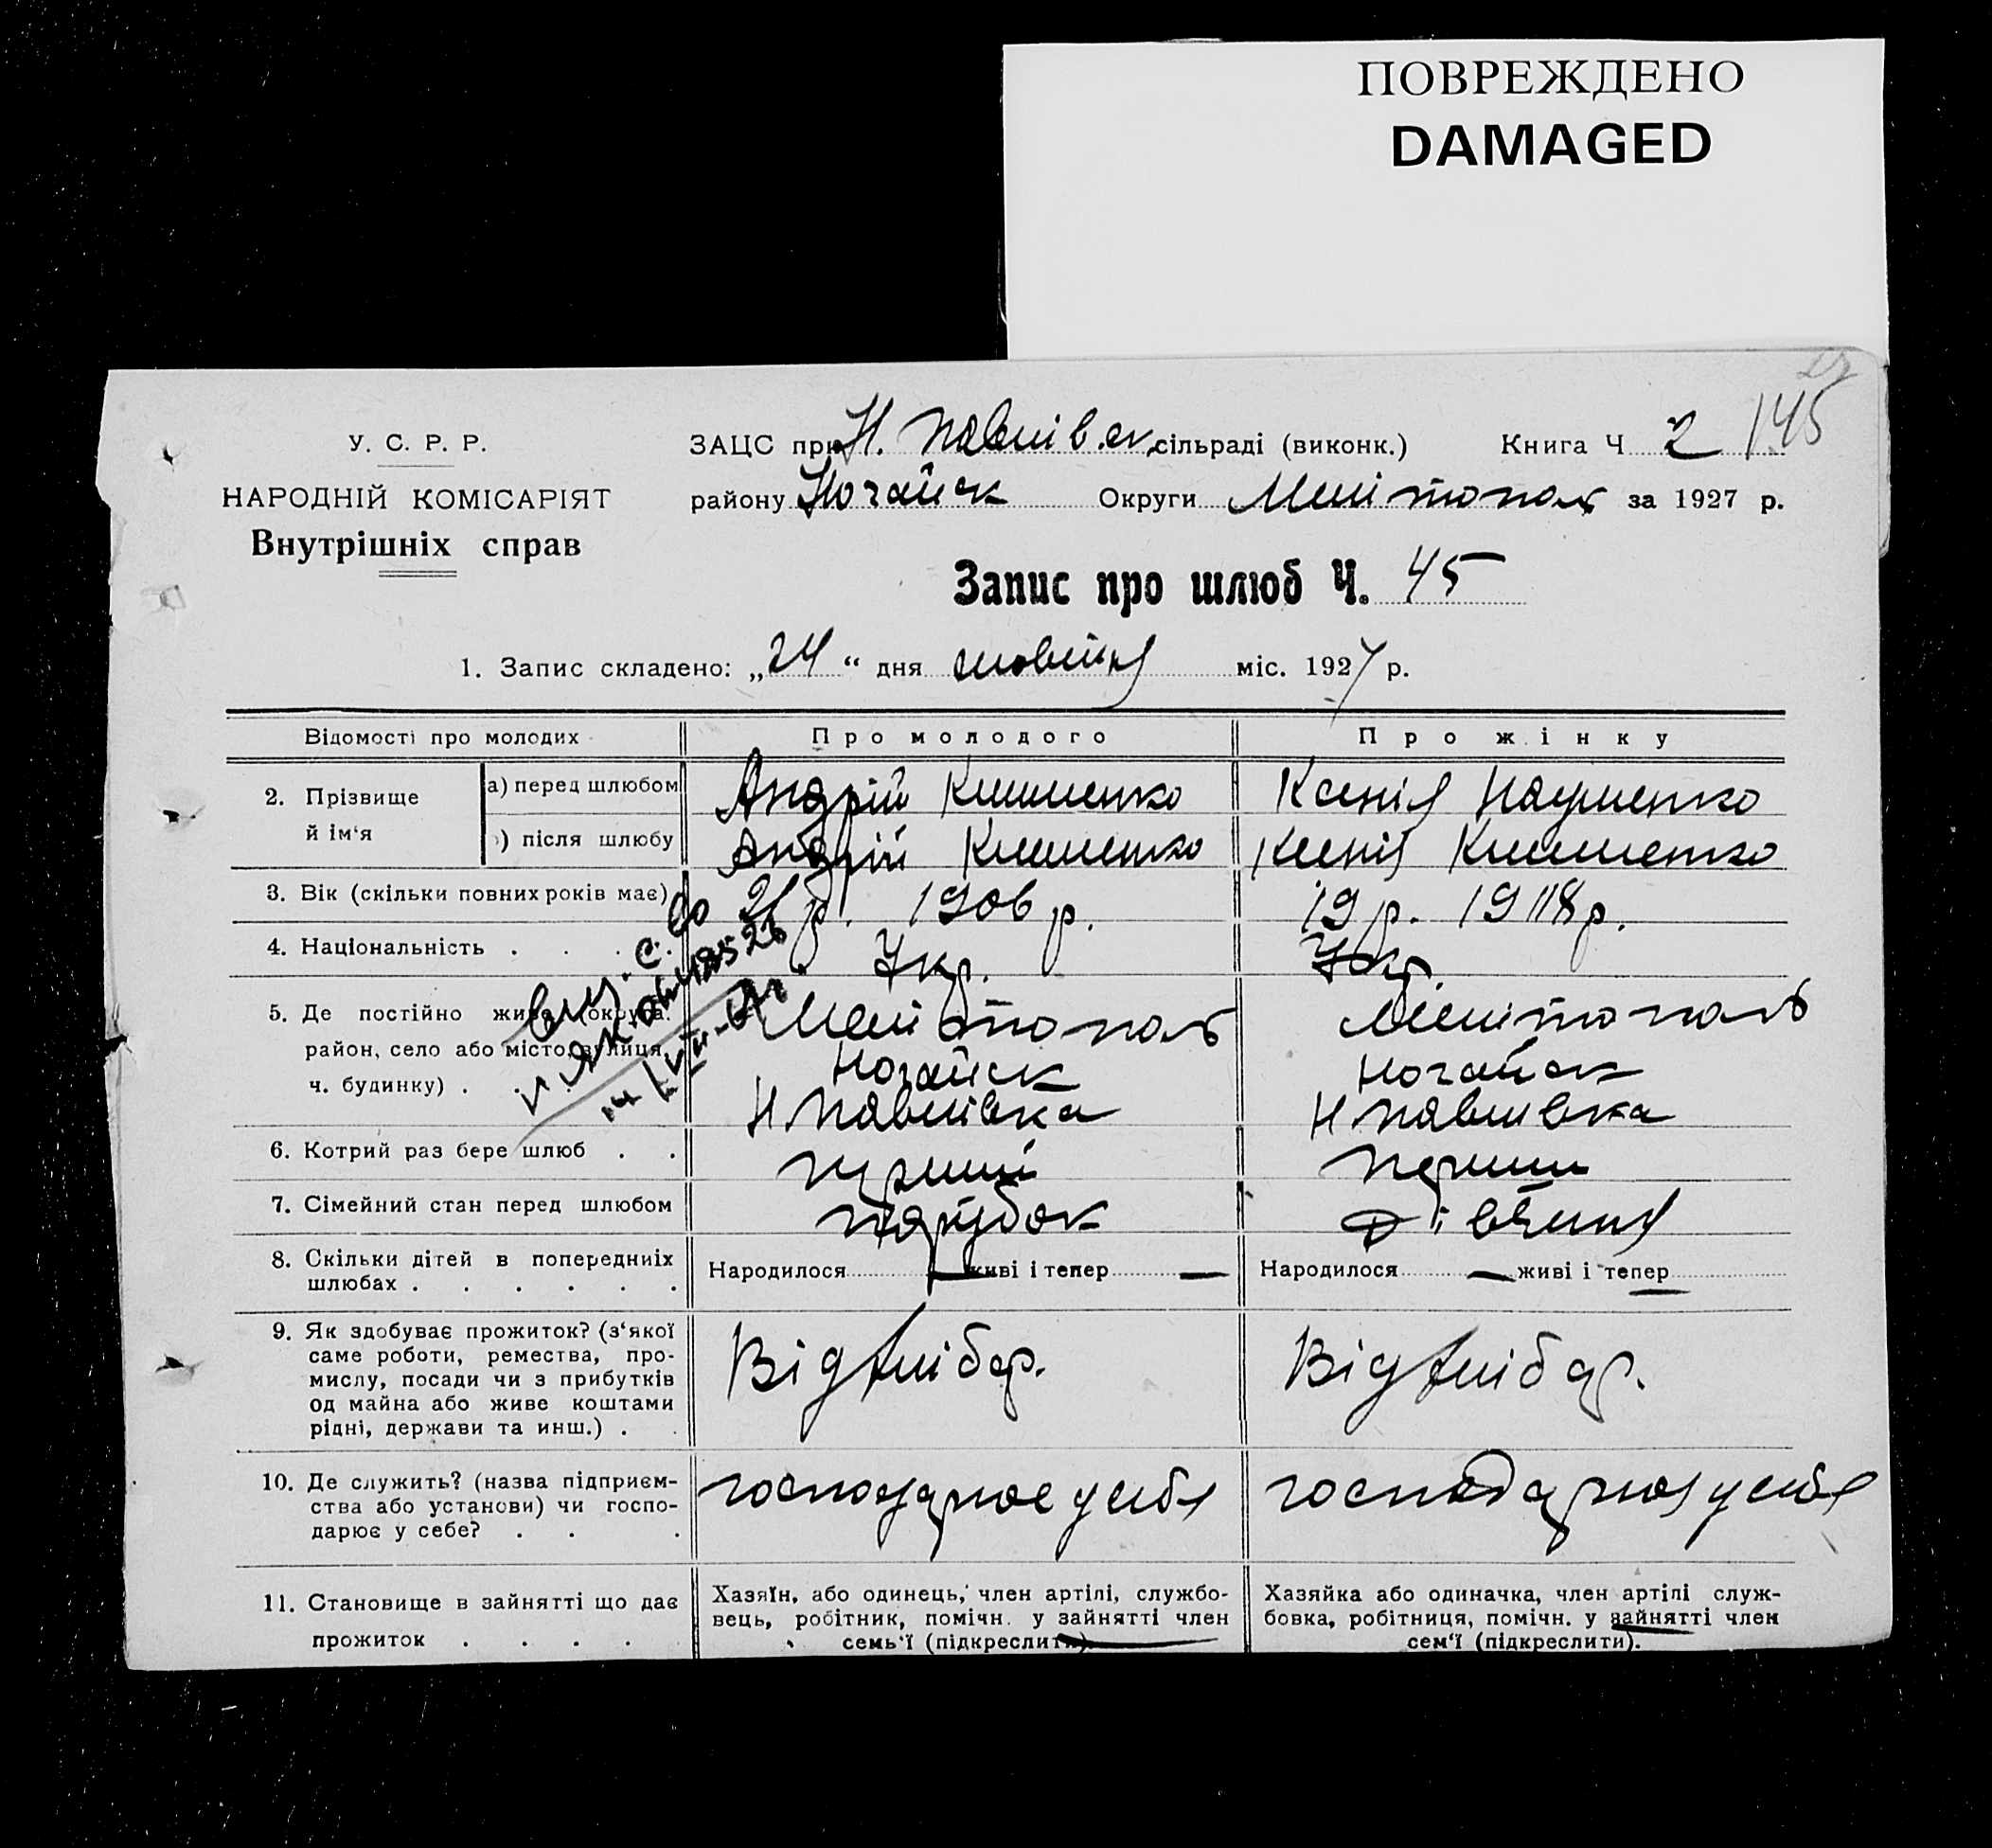 ПОВРЕЖДЕНО
DAMAGED
145
У. С. Р. Р.
НАРОДНІЙ КОМІСАРІЯТ
Внутрішніх справ
ЗАЦС при Н. Павлівск. сільраді (виконк.) Книга Ч 2
району Ногайск Округи Мелітополь за 1927 р.
Запис про шлюб Ч. 45
1. Запис складено: „24“ дня жовтня міс. 1927 р.
Відомості про молодих Про молодого Про жінку
2. Прізвище й ім‘я
а) перед шлюбом Андрій Клименко Ксенія Науменко
) після шлюбу Андрій Клименко Ксенія Клименко
3. Вік (скільки повних років має) 21 р. 1906 р. 19 р. 1908 р.
4. Національність . . . Укр. Укр.
5. Де постійно живе (округа, Мелітополь Мелітополь
район, село або місто, вулиця, Ногайск Ногайск
ч. будинку) . Н Павлівка Н Павлівка
6. Котрий раз бере шлюб . . перший перший
7. Сімейний стан перед шлюбом парубок дівчина
8. Скільки дітей в попередниіх
шлюбах . . . . . . Народилося — живі і тепер — Народилося — живі і тепер —
9. Як здобуває прожиток? (з‘якої
саме роботи, ремества, про-
мислу, посади чи з прибутків
од майна або живе коштами
рідні, держави та инш.) . .
Від хлібор. Від хлібор.
10. Де служить? (назва підприєм-
ства або установи) чи госпо-
дарює у себе? . . .
господарює у себя господарює у себя
11. Становище в зайнятті що дає
прожиток . . . .
Хазяїн, або одинець, член артілі, службо-
вець, робітник, помічн. у зайнятті член
семь‘ї (підкреслити).
Хазяйка або одиначка, член артілі служ-
бовка, робітниця, помічн. у зайнятті член
сем‘ї (підкреслити).